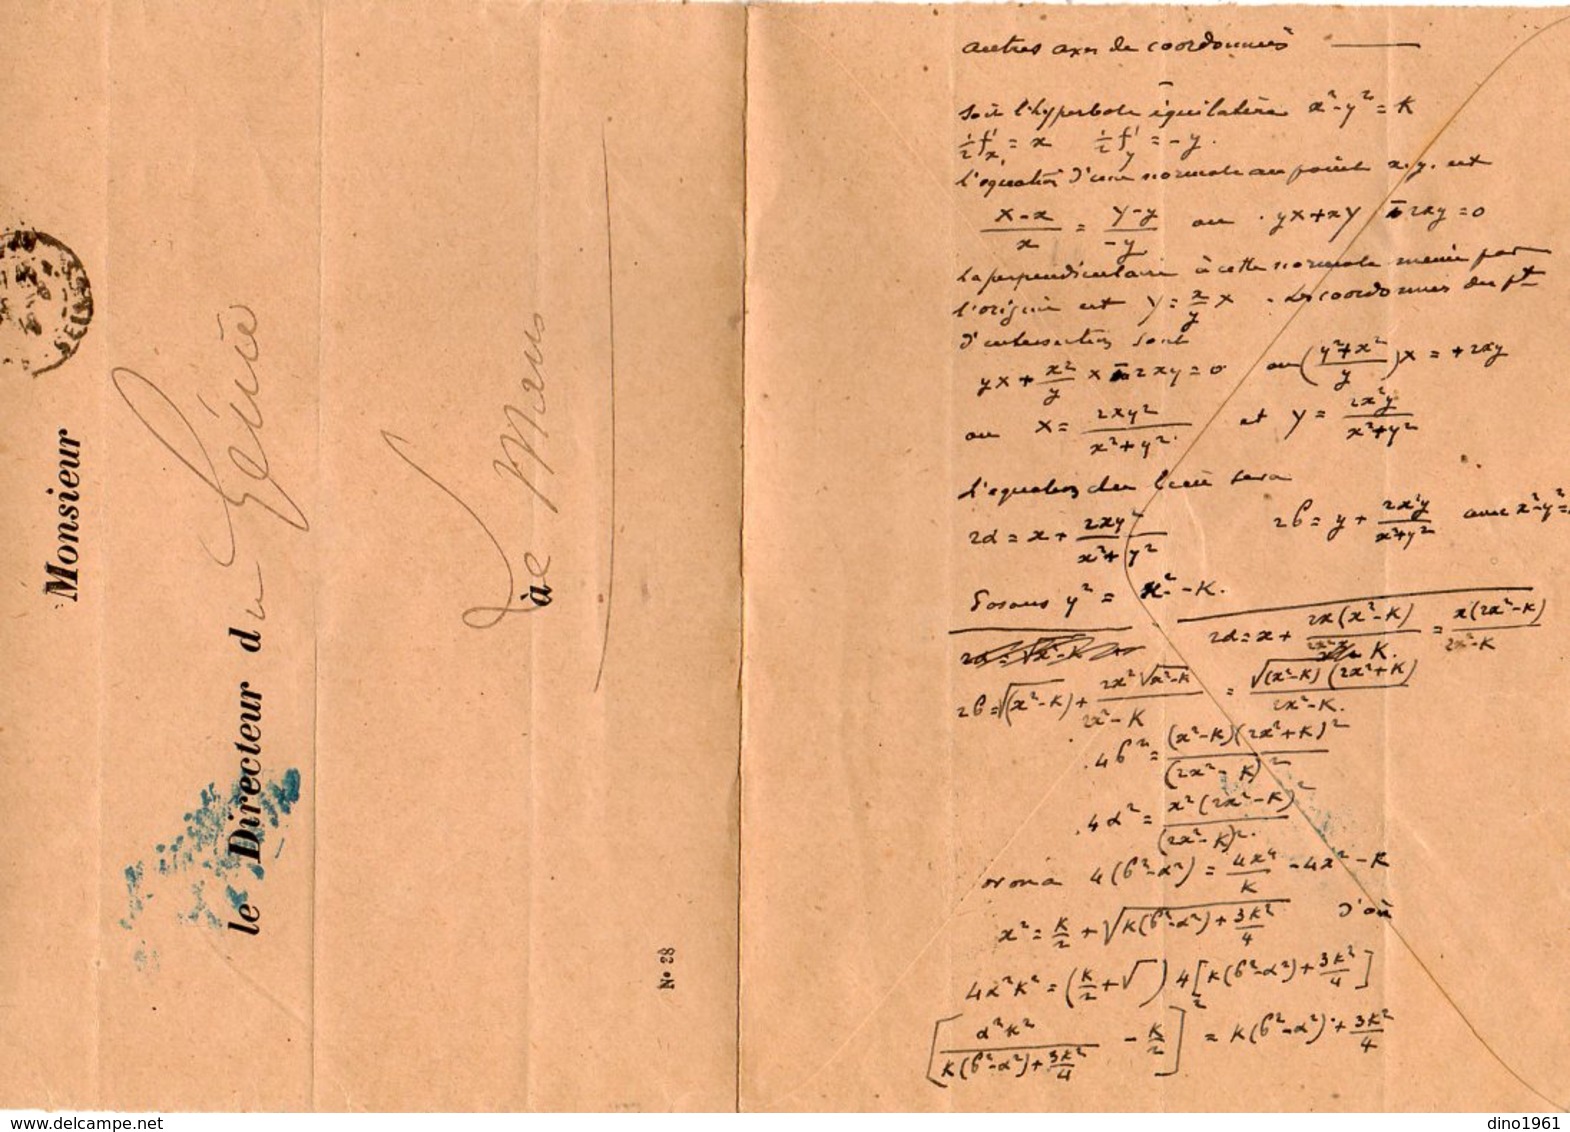 SEINE
Monsieur
le Directeur du Génie
à Le Mans
N° 28
autres axes de coordonnées
soit l'hyperbole équilatère x² - y² = K
½ f'x = x ½ f'y = - y.
l'équation d'une normale au point x.y. est
X - x / x = Y - y / - y ou yX + xY - 2xy = 0
La perpendiculaire à cette normale menée par
l'origine est Y = x/y X . Les coordonnées du pt
d'intersection sont
yX + x²/y X - 2xy = 0 ou ( y² + x² / y ) X = + 2xy
ou X = 2xy² / x² + y² et Y = 2x²y / x² + y²
L'équation du lieu sera
2α = x + 2xy² / x² + y² 2β = y + 2x²y / x² + y² avec x² - y² =
Posons y² = x² - K.
2α = x + 2x(x² - K) / 2x² - K. = x(2x² - K) / 2x² - K
2β = √(x² - K) + 2x² √x² - K / 2x² - K = √(x² - K) (2x² + K) / 2x² - K.
4β² = (x² - K)(2x² + K)² / (2x² - K)²
4α² = x² (2x² - K)² / (2x² - K)².
or on a 4(β² - α²) = 4x⁴ / K - 4x² - K
x² = K/2 + √ K(β² - α²) + 3K²/4 d'où
4α²K² = ( K/2 + √ )² 4 [ K(β² - α²) + 3K²/4 ]
[ α²K² / K(β² - α²) + 3K²/4 - K/2 ]² = K(β² - α²) + 3K²/4
dino1961